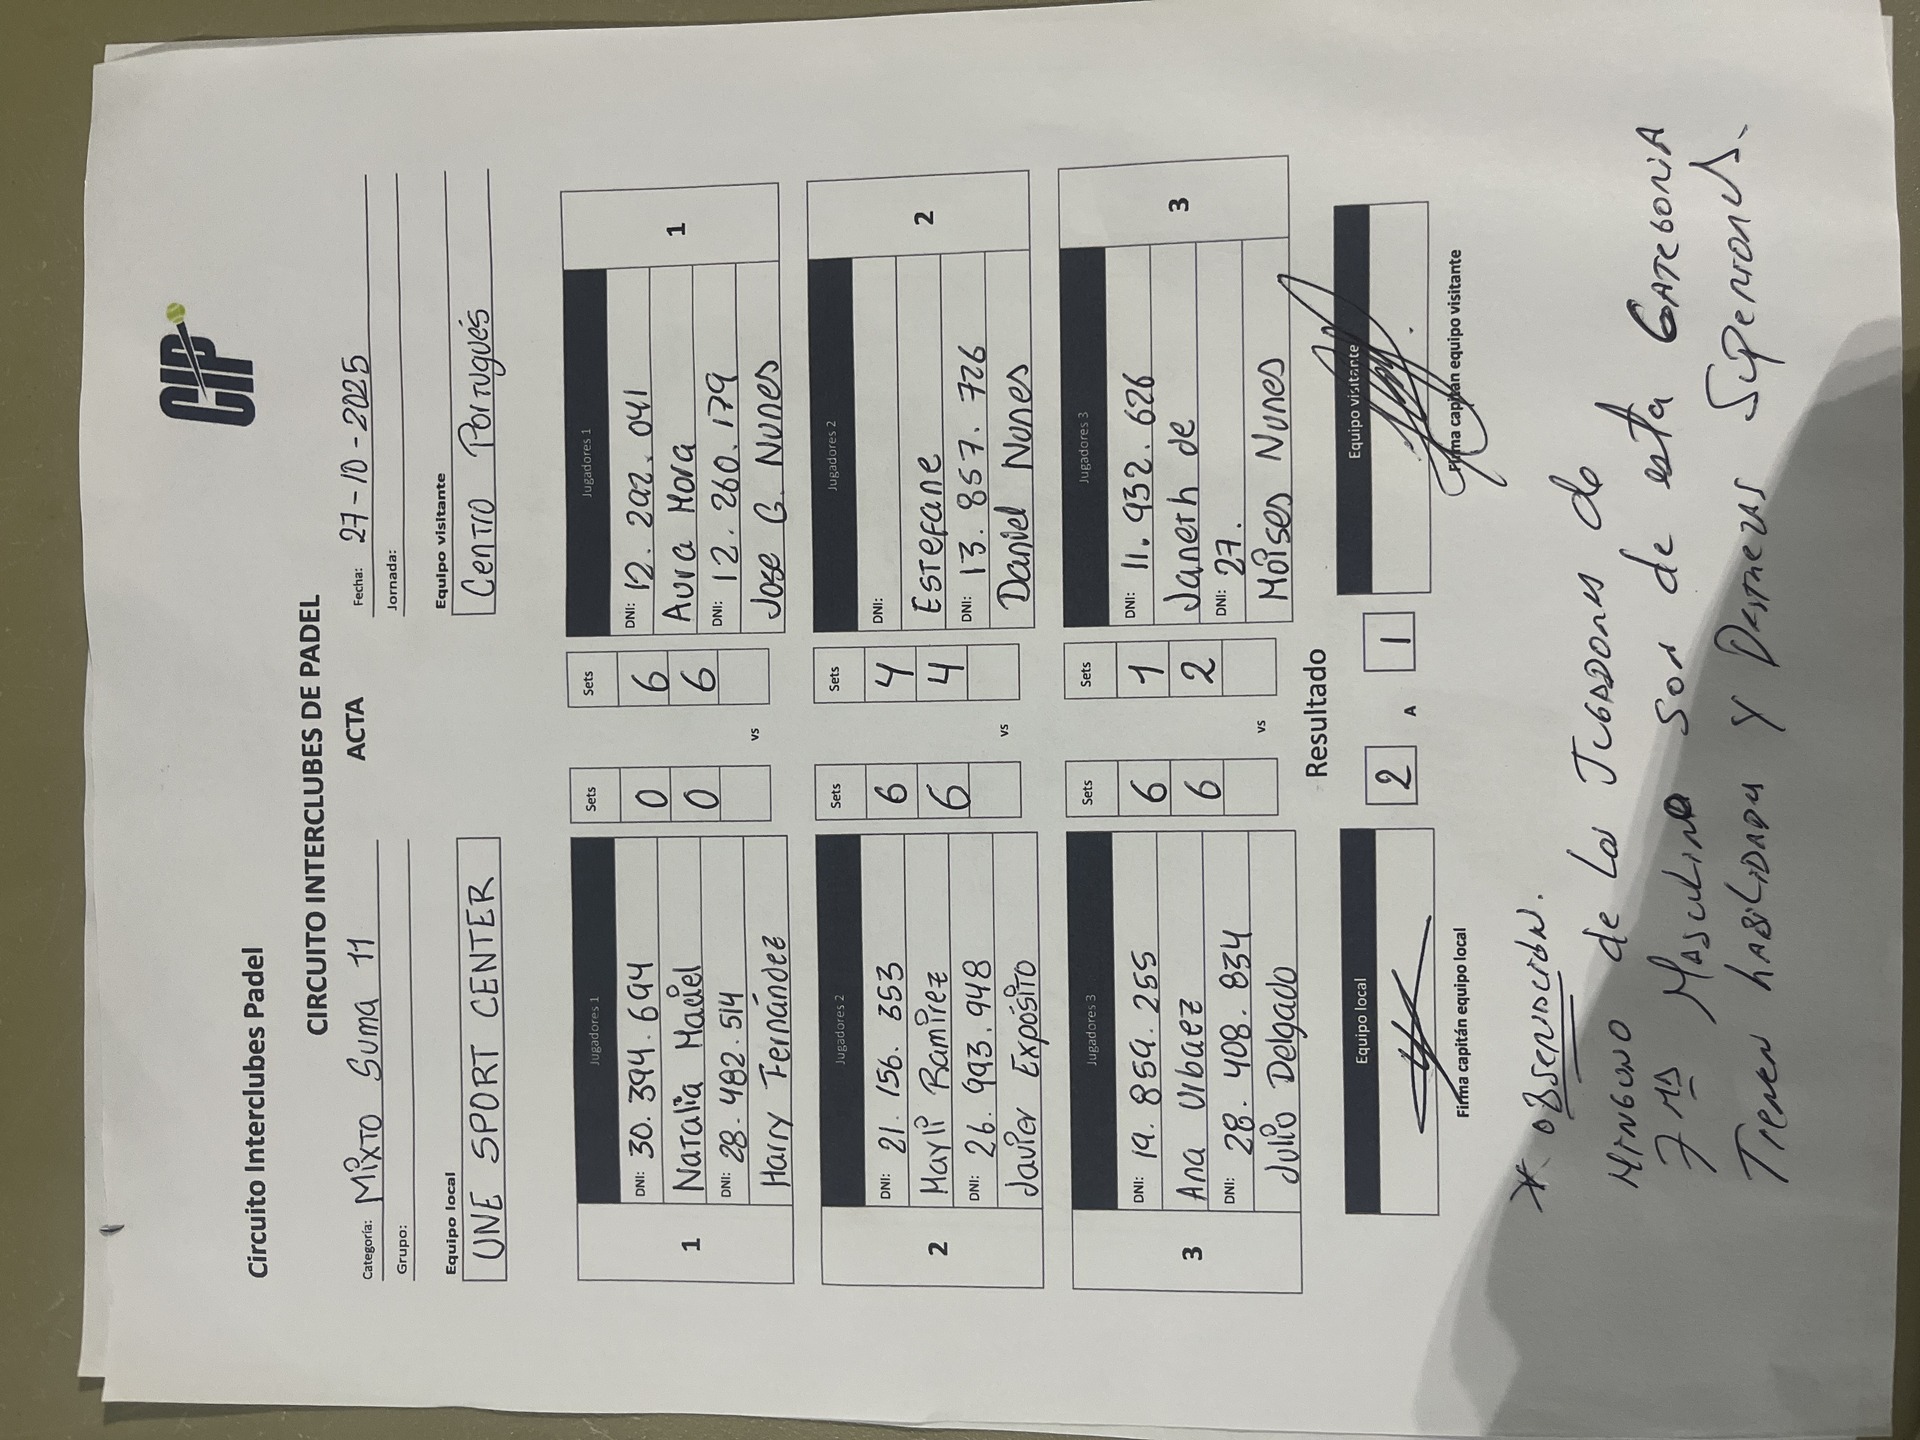 Circuito Interclubes Padel
CIP
CIRCUITO INTERCLUBES DE PADEL
Categoría: Mixto Suma 11
ACTA
Fecha: 27-10-2025
Grupo:
Jornada:
Equipo local
Equipo visitante
UNE SPORT CENTER
Centro Portugués
1
Jugadores 1
Sets
Sets
Jugadores 1
1
DNI: 30.394.694
0
6
DNI: 12.202.041
Natalia Maciel
0
6
Aura Mora
DNI: 28.482.514
DNI: 12.260.179
Harry Fernández
vs
Jose G. Nunes
2
Jugadores 2
Sets
Sets
Jugadores 2
2
DNI: 21.156.353
6
4
DNI:
Mayli Ramirez
6
4
Estefane
DNI: 26.993.948
DNI: 13.857.726
Javier Expósito
vs
Daniel Nunes
3
Jugadores 3
Sets
Sets
Jugadores 3
3
DNI: 19.859.255
6
1
DNI: 11.932.626
Ana Urbaez
6
2
Janeth de
DNI: 28.408.834
DNI: 27.
Julio Delgado
vs
Moises Nunes
Resultado
Equipo local
2 A 1
Equipo visitante
Firma capitán equipo local
Firma capitán equipo visitante
* Observación.
Ninguno de los Jugadores de
7ma Masculino son de esta Categoria
Tienen habilidades y Destrezas Superiores.